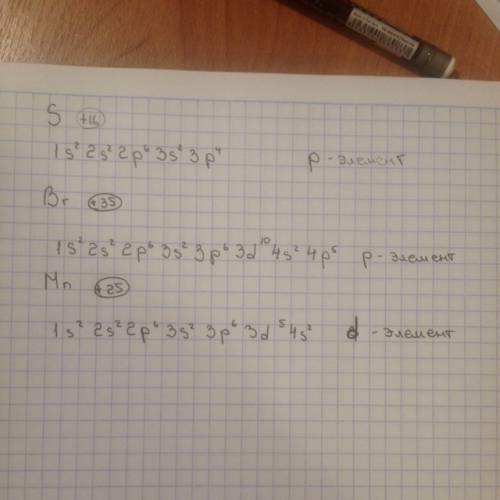 S +16
1s² 2s² 2p⁶ 3s² 3p⁴ p-элемент
Br +35
1s² 2s² 2p⁶ 3s² 3p⁶ 3d¹⁰ 4s² 4p⁵ p-элемент
Mn +25
1s² 2s² 2p⁶ 3s² 3p⁶ 3d⁵ 4s² d-элемент